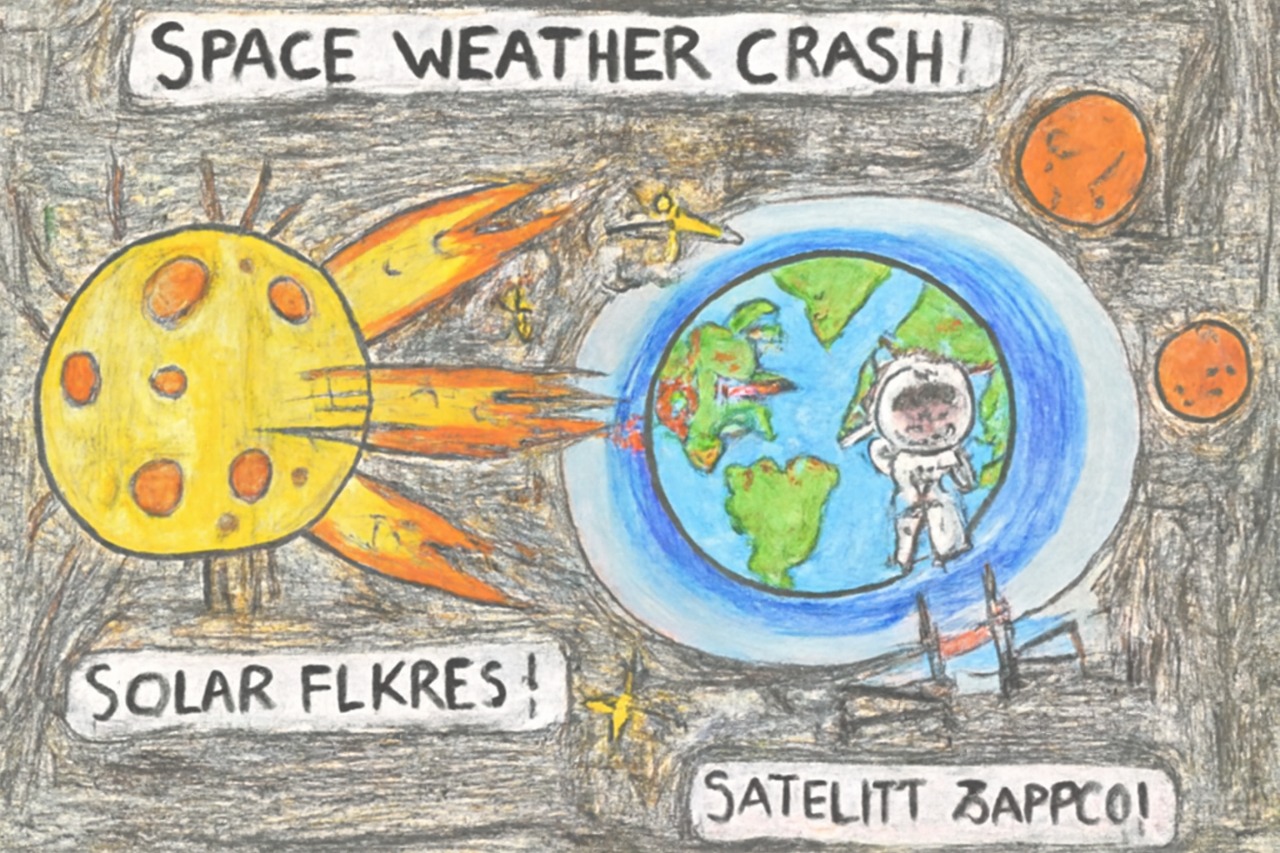 SPACE WEATHER CRASH!
SOLAR FLKRES!
SATELITT ZAPPCO!